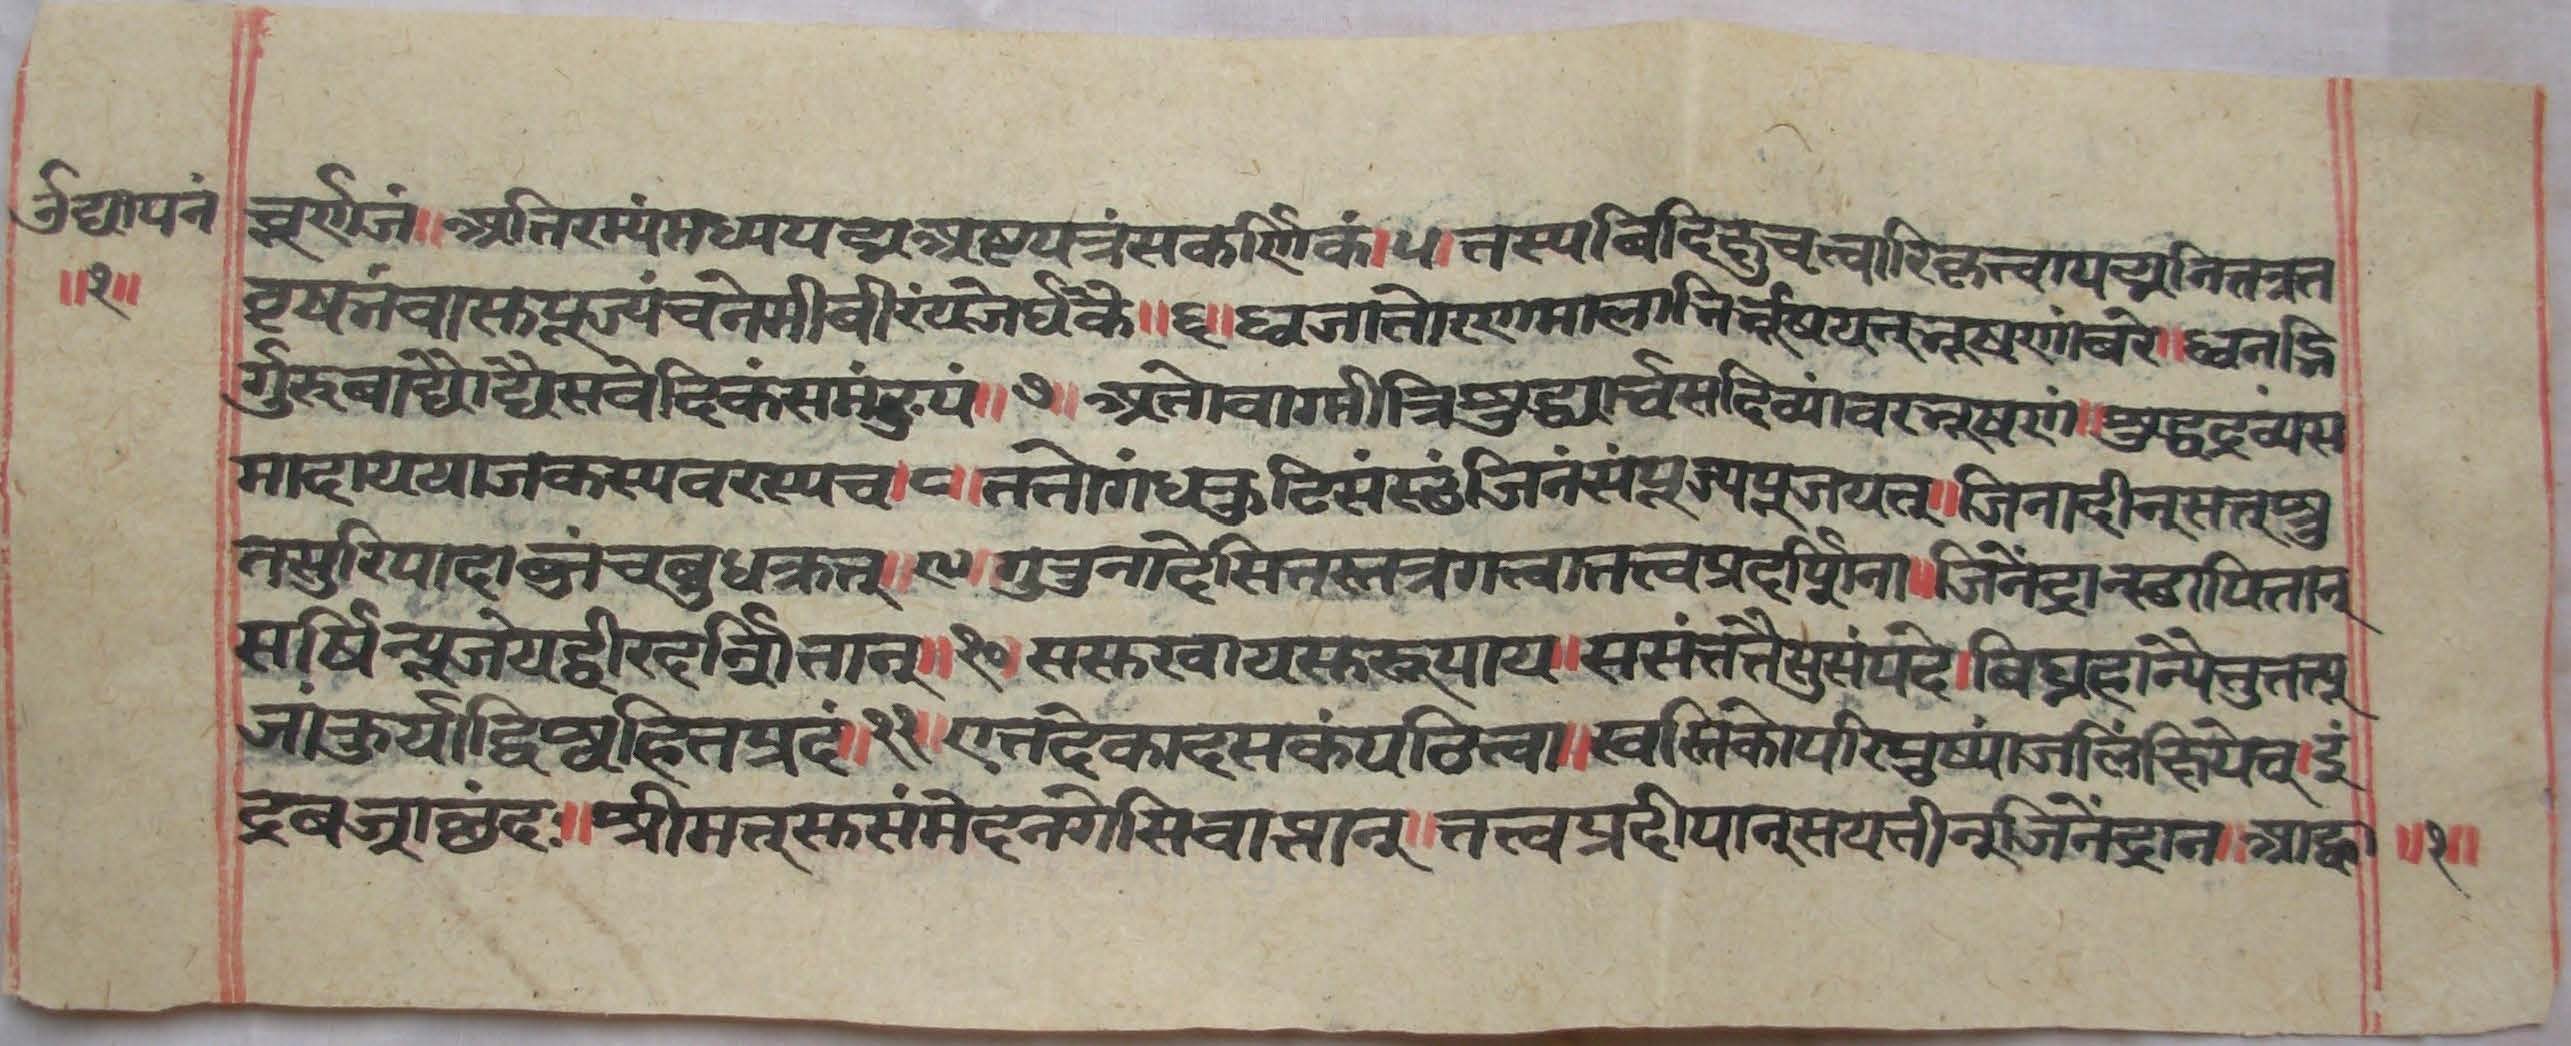 उद्यापनं
॥१॥
चूर्णजं॥ अतिरम्यं मध्यपद्म अष्टपत्रं सकर्णिकं।५। तस्य बिदिक्षु चत्वारि कृत्वा पद्मानि तत्र त
वृषभं वासुपूज्यं च नेमी बीरं यजेर्घकै॥६॥ ध्वजातोरणमालाभिर्भूषयन् भूषणांबरे॥ ध्वनद्भि
र्गुरुबाद्यौद्यै सवेदिकं समंडपं॥७॥ अतो वाग्मी त्रिशुद्ध्यार्च सदिव्यांवरभूषणं॥ शुद्धद्रव्यं स
मादाय याजकस्यवरस्य च।८॥ ततो गंधकुटिसंस्छं जिनं संपूज्य पूजयत्॥ जिनादीन् सत्श्रु
तसुरिपादाब्जं च बुधक्रत्॥९॥ गुरुनादेसितस्तत्र गत्वा तत्त्वप्रदर्शिना॥ जिनेंद्रान्स्छापितान्
सर्षिन्पूजयेद्धीर
॥१०॥ सस्तखायस्तरूपाय॥ ससंत्ततै सुसंपदे। बिघ्नहान्यै
त्पू
जां कुर्याद्विश्वहितप्रदं॥११॥ एतदेकादसकं पठित्वा॥ स्वस्तिकोपरि पुष्पांजलिं क्षिपेत्। इं
द्रबज्राछंदः॥ श्रीमत्सुसंमेदनगे सिवाप्तान्॥ तत्त्वप्रदीपान् सयतीन् जिनेंद्रान॥ आह्वा
॥१॥